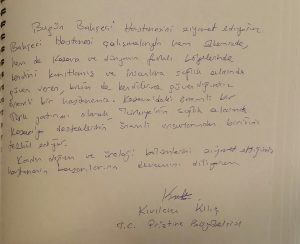 Bugün Bahçeci Hastanesini ziyaret ettiğimiz
Bahçeci Hastanesi çalışmalarıyla hem ülkemizde,
hem de Kosova ve dünyanın farklı bölgelerinde
kendini kanıtlamış ve insanlara sağlık alanında
güven veren, bizim de kendilerine güvendiğimiz
önemli bir hastanemiz. Kosova'daki önemli bir
Türk yatırımı olarak, Türkiye'nin sağlık alanında
Kosova'ya desteklerinin önemli unsurlarından birisini
teşkil ediyor.
Kadın doğum ve üroloji bölümlerini ziyaret ettiğimiz
hastanenin başarılarının devamını diliyorum
Kıvılcım Kılıç
T.C. Priştine Büyükelçisi